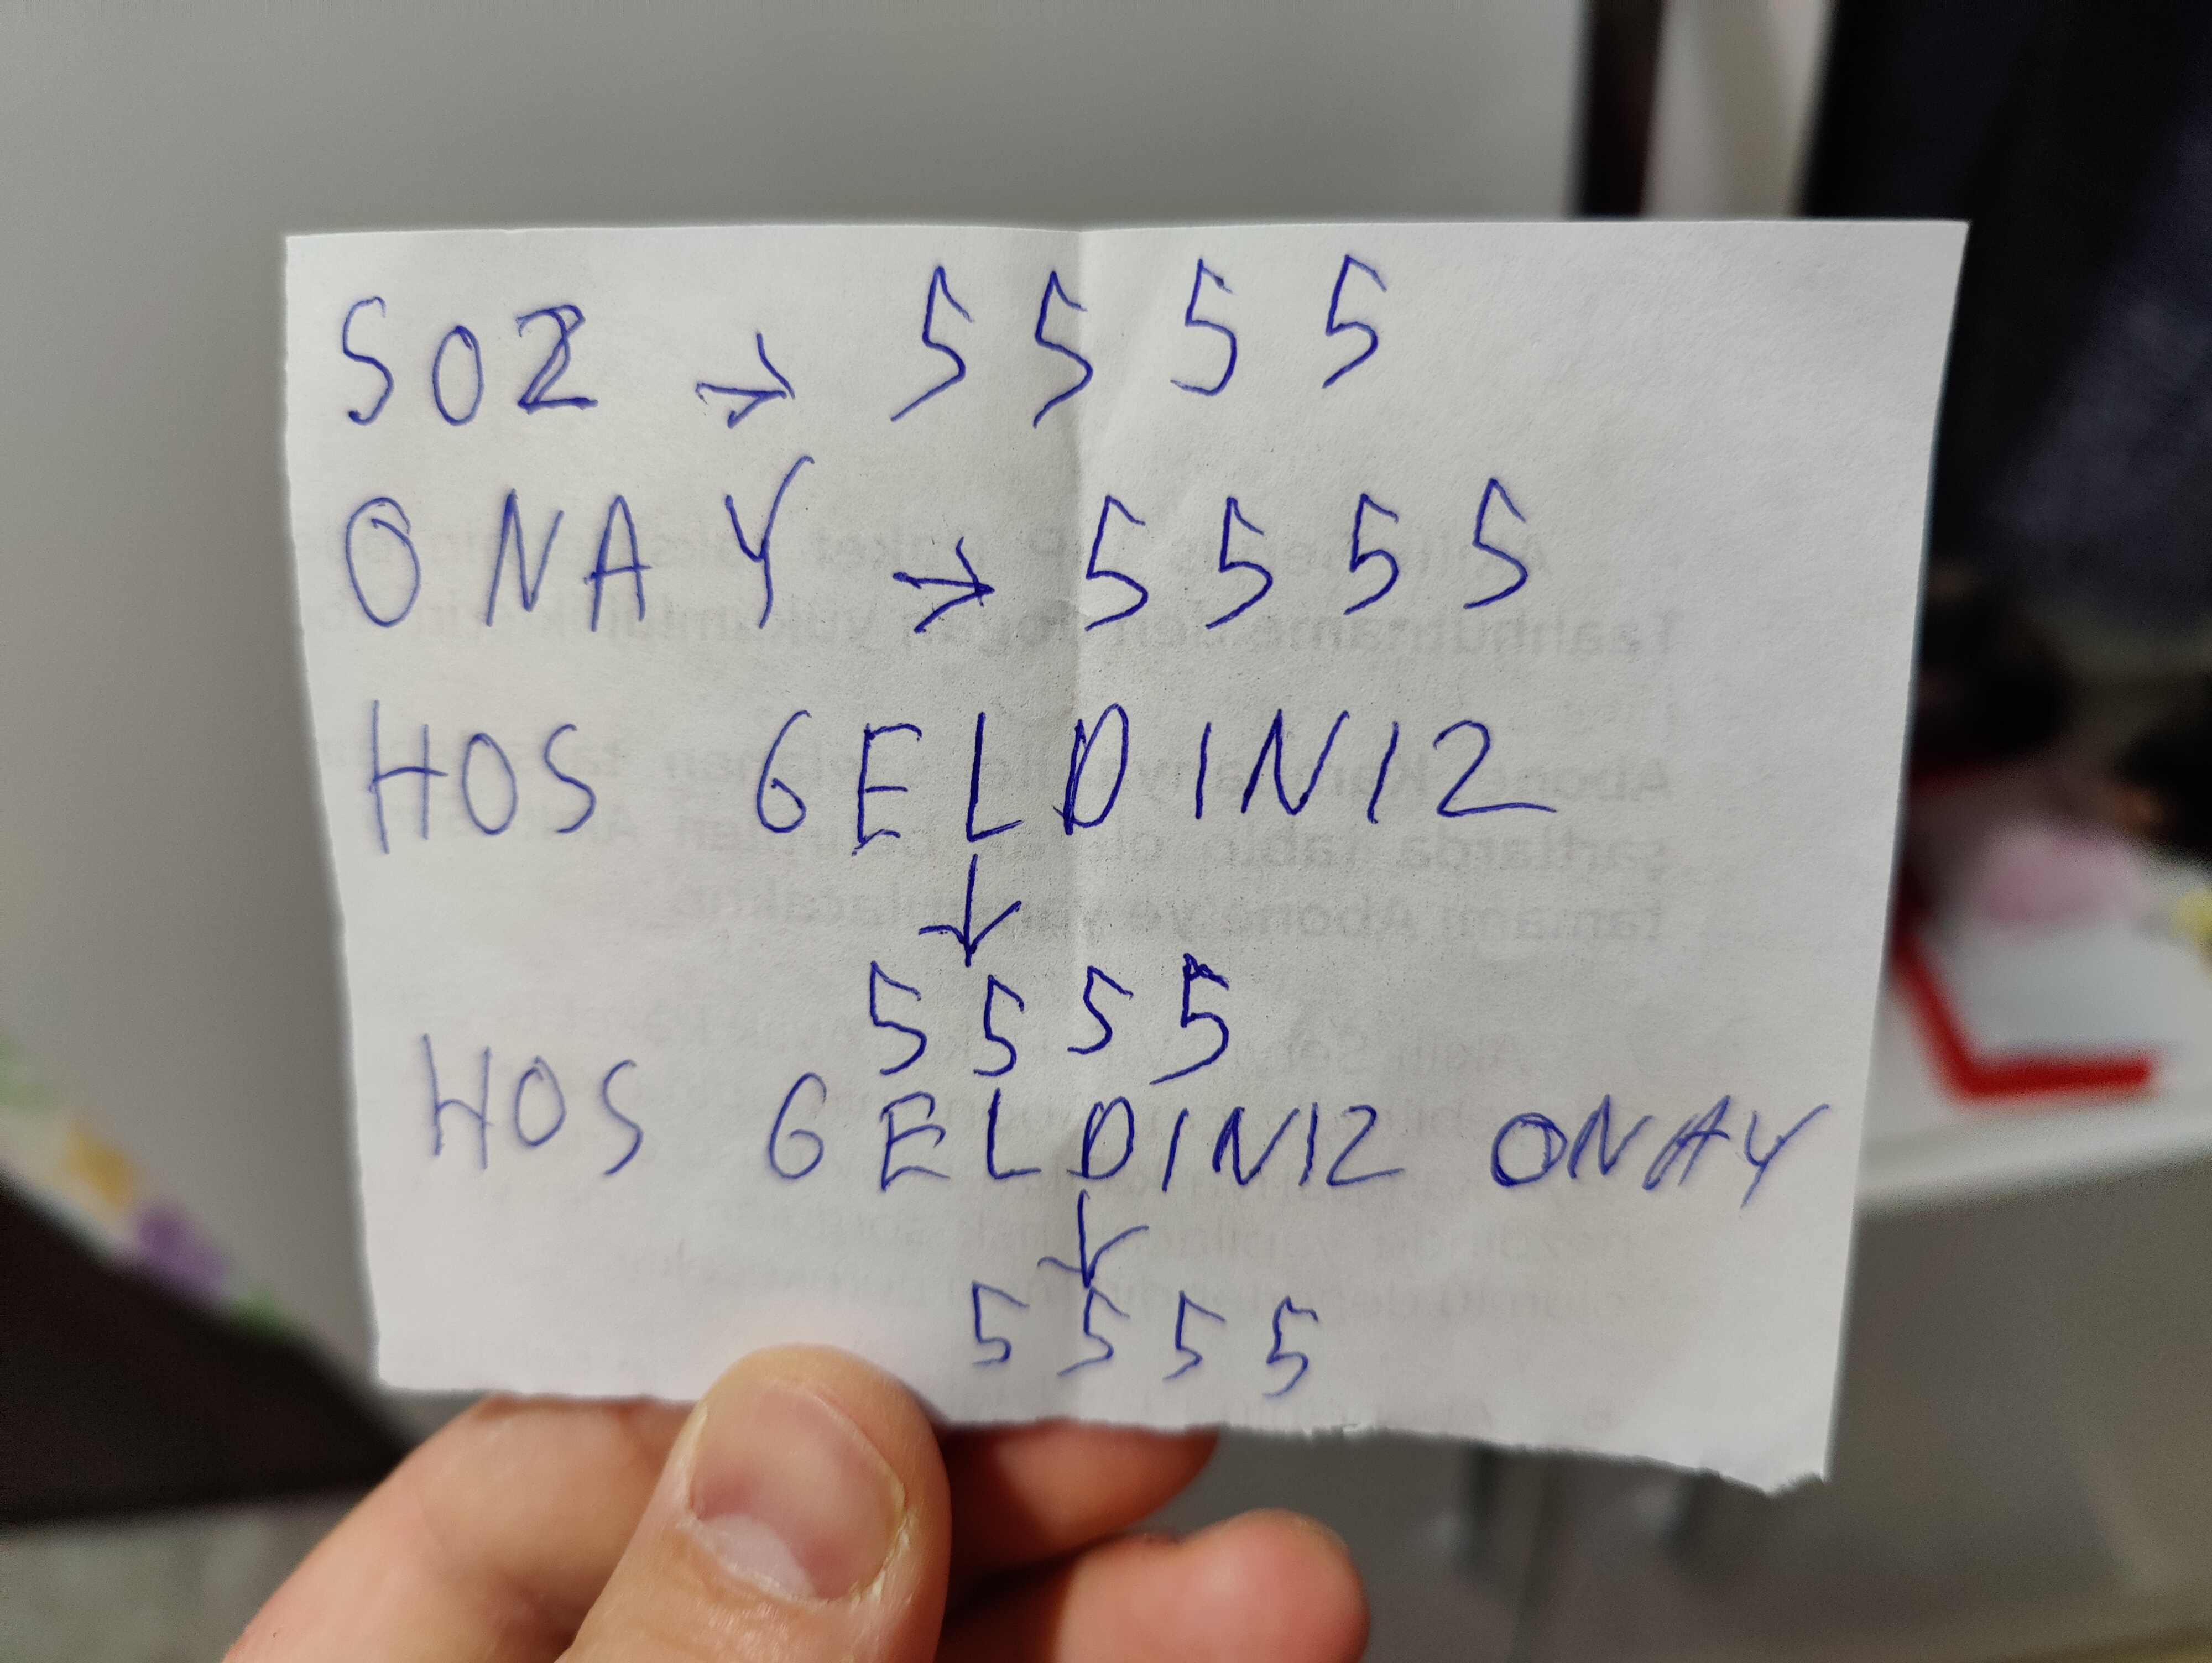 SOZ → 5555
ONAY → 5555
HOS GELDINIZ
↓
5555
HOS GELDINIZ ONAY
↓
5555